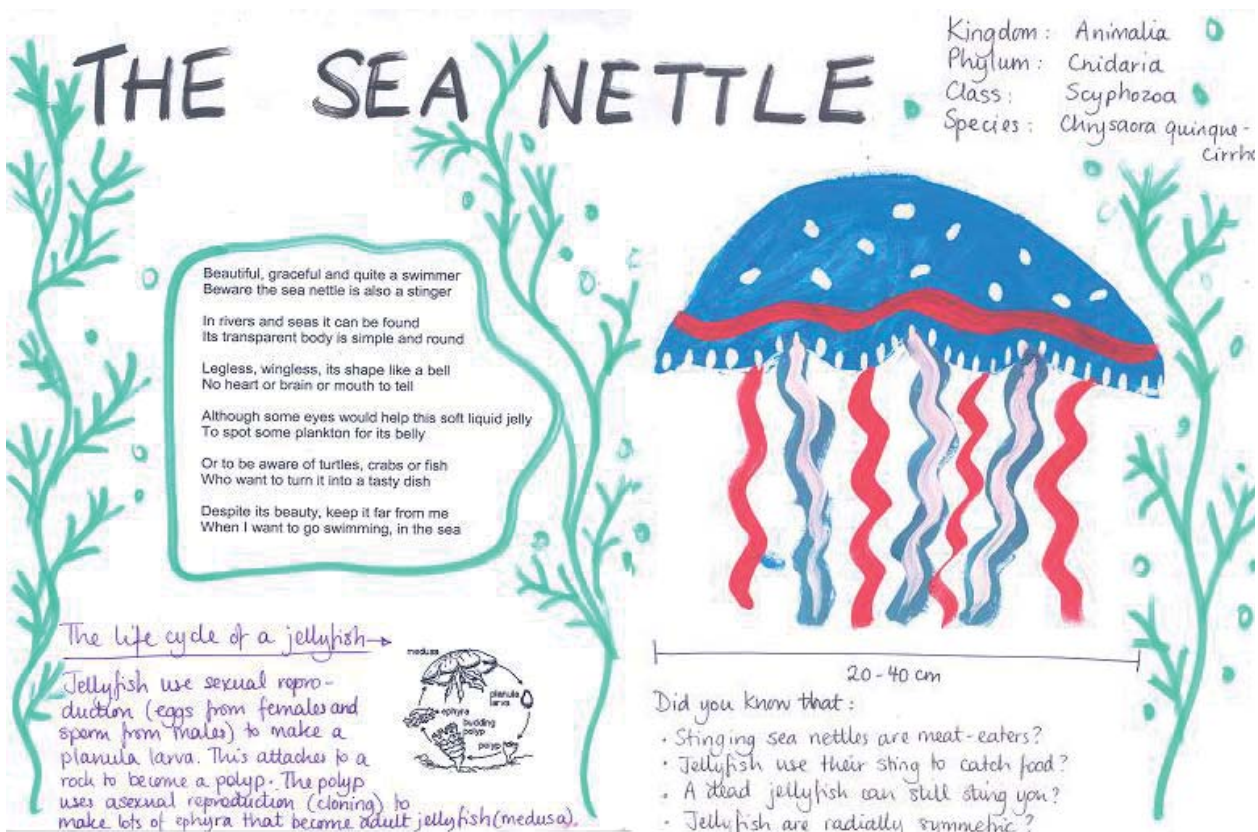 THE SEA NETTLE
Kingdom: Animalia
Phylum: Cnidaria
Class: Scyphozoa
Species: Chrysaora quinque-
cirrho
Beautiful, graceful and quite a swimmer
Beware the sea nettle is also a stinger
In rivers and seas it can be found
Its transparent body is simple and round
Legless, wingless, its shape like a bell
No heart or brain or mouth to tell
Although some eyes would help this soft liquid jelly
To spot some plankton for its belly
Or to be aware of turtles, crabs or fish
Who want to turn it into a tasty dish
Despite its beauty, keep it far from me
When I want to go swimming, in the sea
The life cycle of a jellyfish→
Jellyfish use sexual repro-
duction (eggs from females and
sperm from males) to make a
planula larva. This attaches to a
rock to become a polyp. The polyp
uses asexual reproduction (cloning) to
make lots of ephyra that become adult jellyfish (medusa).
medusa
planula
larva
ephyra
budding
polyp
polyp
20-40 cm
Did you know that:
· Stinging sea nettles are meat-eaters?
· Jellyfish use their sting to catch food?
· A dead jellyfish can still sting you?
· Jellyfish are radially symmetric?